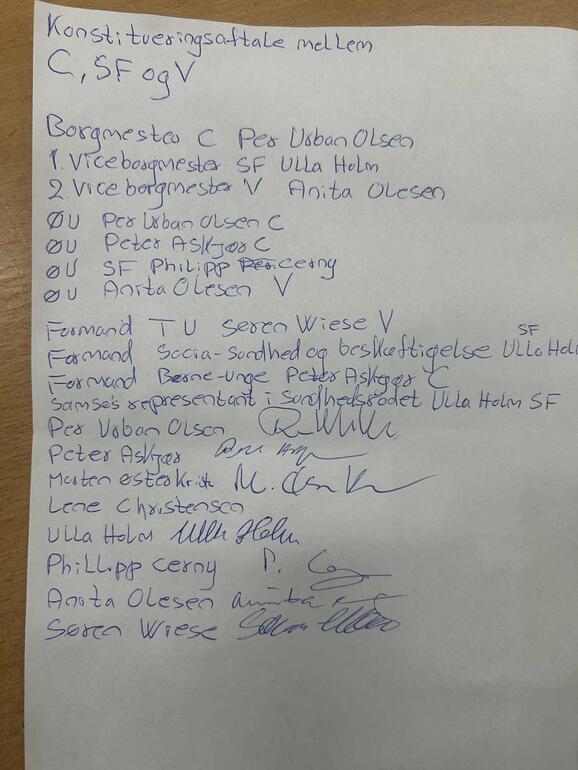 Konstitueringsaftale mellem
C, SF og V
Borgmester C Per Urban Olsen
1. Viceborgmester SF Ulla Holm
2. Viceborgmester V Anita Olesen
ØU Per Urban Olsen C
ØU Peter Askjær C
ØU SF Philipp cerny
ØU Anita Olesen V
Formand TU Søren Wiese V
SF
Formand Socia-Sundhed og beskæftigelse Ulla Holm
Formand Børne-unge Peter Askjær C
Samsøs representant i Sundhedsrådet Ulla Holm SF
Per Urban Olsen
Peter Askjær
Morten Østerkrik M.
Lene Christensen
Ulla Holm Ulla Holm
Phillipp cerny P.
Anita Olesen anita
Søren Wiese Søren Wiese